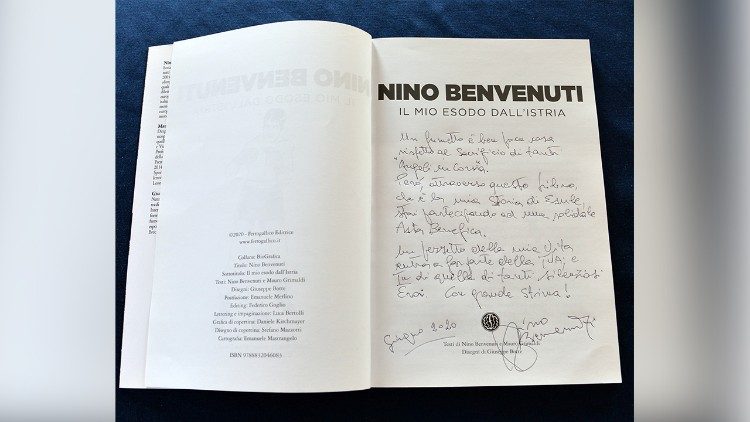 ©2020 - Ferrogallico Editrice
www.ferrogallico.it
Collana: BioGrafica
Titolo: Nino Benvenuti
Sottotitolo: Il mio esodo dall'Istria
Testi: Nino Benvenuti e Mauro Grimaldi
Disegni: Giuseppe Botte
Postfazione: Emanuele Merlino
Editing: Federico Goglio
Lettering e impaginazione: Luca Bertolli
Grafica di copertina: Daniele Kirchmayer
Disegno di copertina: Stefano Mazzotti
Cartografia: Emanuele Mastrangelo
NINO BENVENUTI
IL MIO ESODO DALL'ISTRIA
Un fumetto è ben poca cosa
rispetto al sacrificio di tanti
"Angeli in Corsia".
Però, attraverso questo libro,
che è la mia storia di Esule,
Stai partecipando ad una solidale
Asta Benefica.
Un pezzetto della mia vita
entra a far parte della TUA; e
Tu di quella di tanti, silenziosi
Eroi. Con grande stima!
Giugno 2020
Nino
Benvenuti
Testi di Nino Benvenuti e Mauro Grimaldi
Disegni di Giuseppe Botte